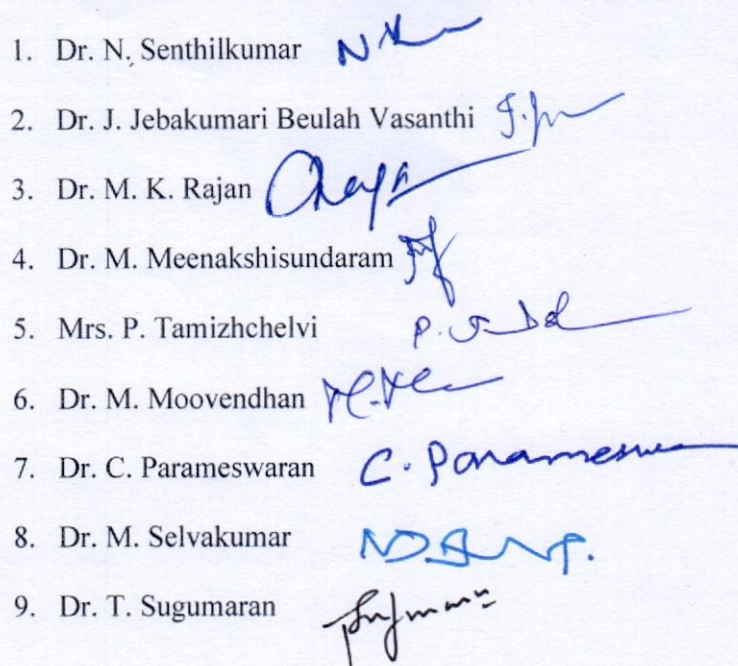 1. Dr. N. Senthilkumar
2. Dr. J. Jebakumari Beulah Vasanthi
3. Dr. M. K. Rajan
4. Dr. M. Meenakshisundaram
5. Mrs. P. Tamizhchelvi
6. Dr. M. Moovendhan
7. Dr. C. Parameswaran C. Parameswa
8. Dr. M. Selvakumar
9. Dr. T. Sugumaran